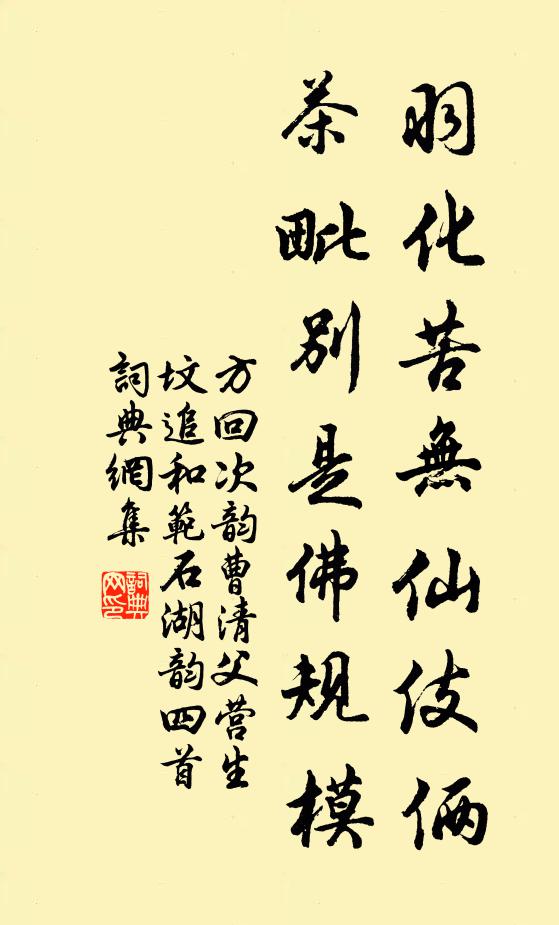 羽化苦無仙伎俩
茶毗别是佛規模
方回次韵曹清父营生
坟追和範石湖韵四首
詞典網集
詞典網印